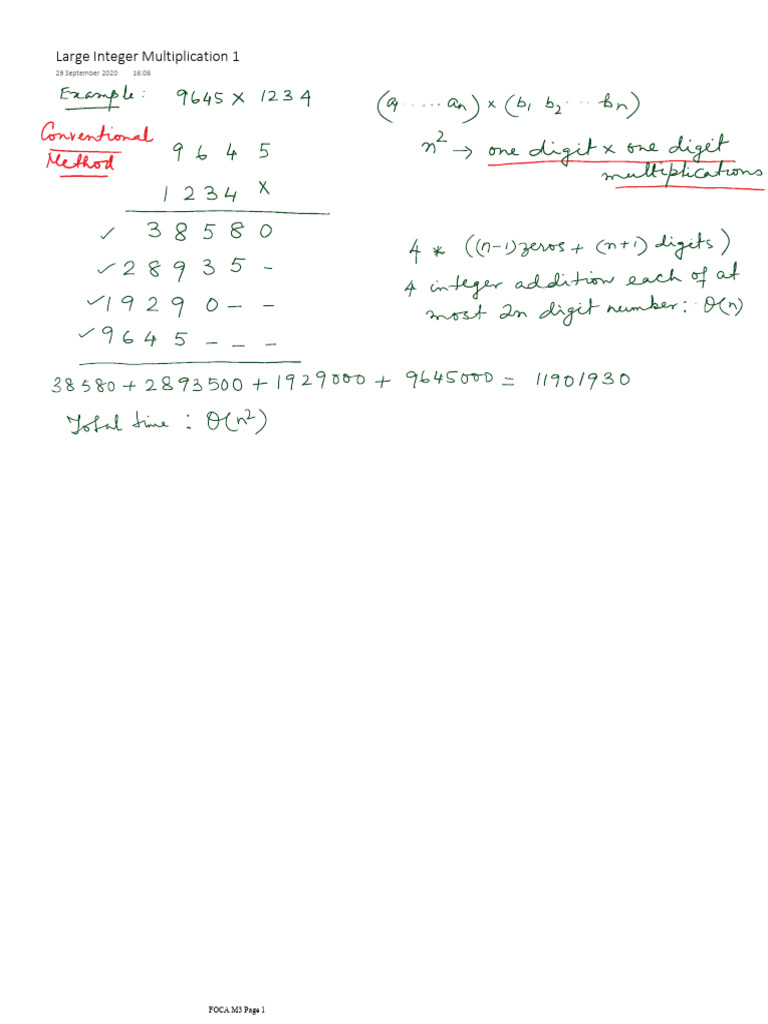 Large Integer Multiplication 1
29 September 2020 16:06
Example: 9645 × 1234
(a1 ..... an) × (b1 b2 ... bn)
Conventional Method
n² → one digit × one digit multiplications
9 6 4 5
1 2 3 4 ×
✓ 3 8 5 8 0
✓ 2 8 9 3 5 -
✓ 1 9 2 9 0 - -
✓ 9 6 4 5 - - -
4 * ((n-1) zeros + (n+1) digits)
4 integer addition each of at
most 2n digit number: O(n)
38580 + 2893500 + 1929000 + 9645000 = 11901930
Total time : O(n²)
FOCA M3 Page 1